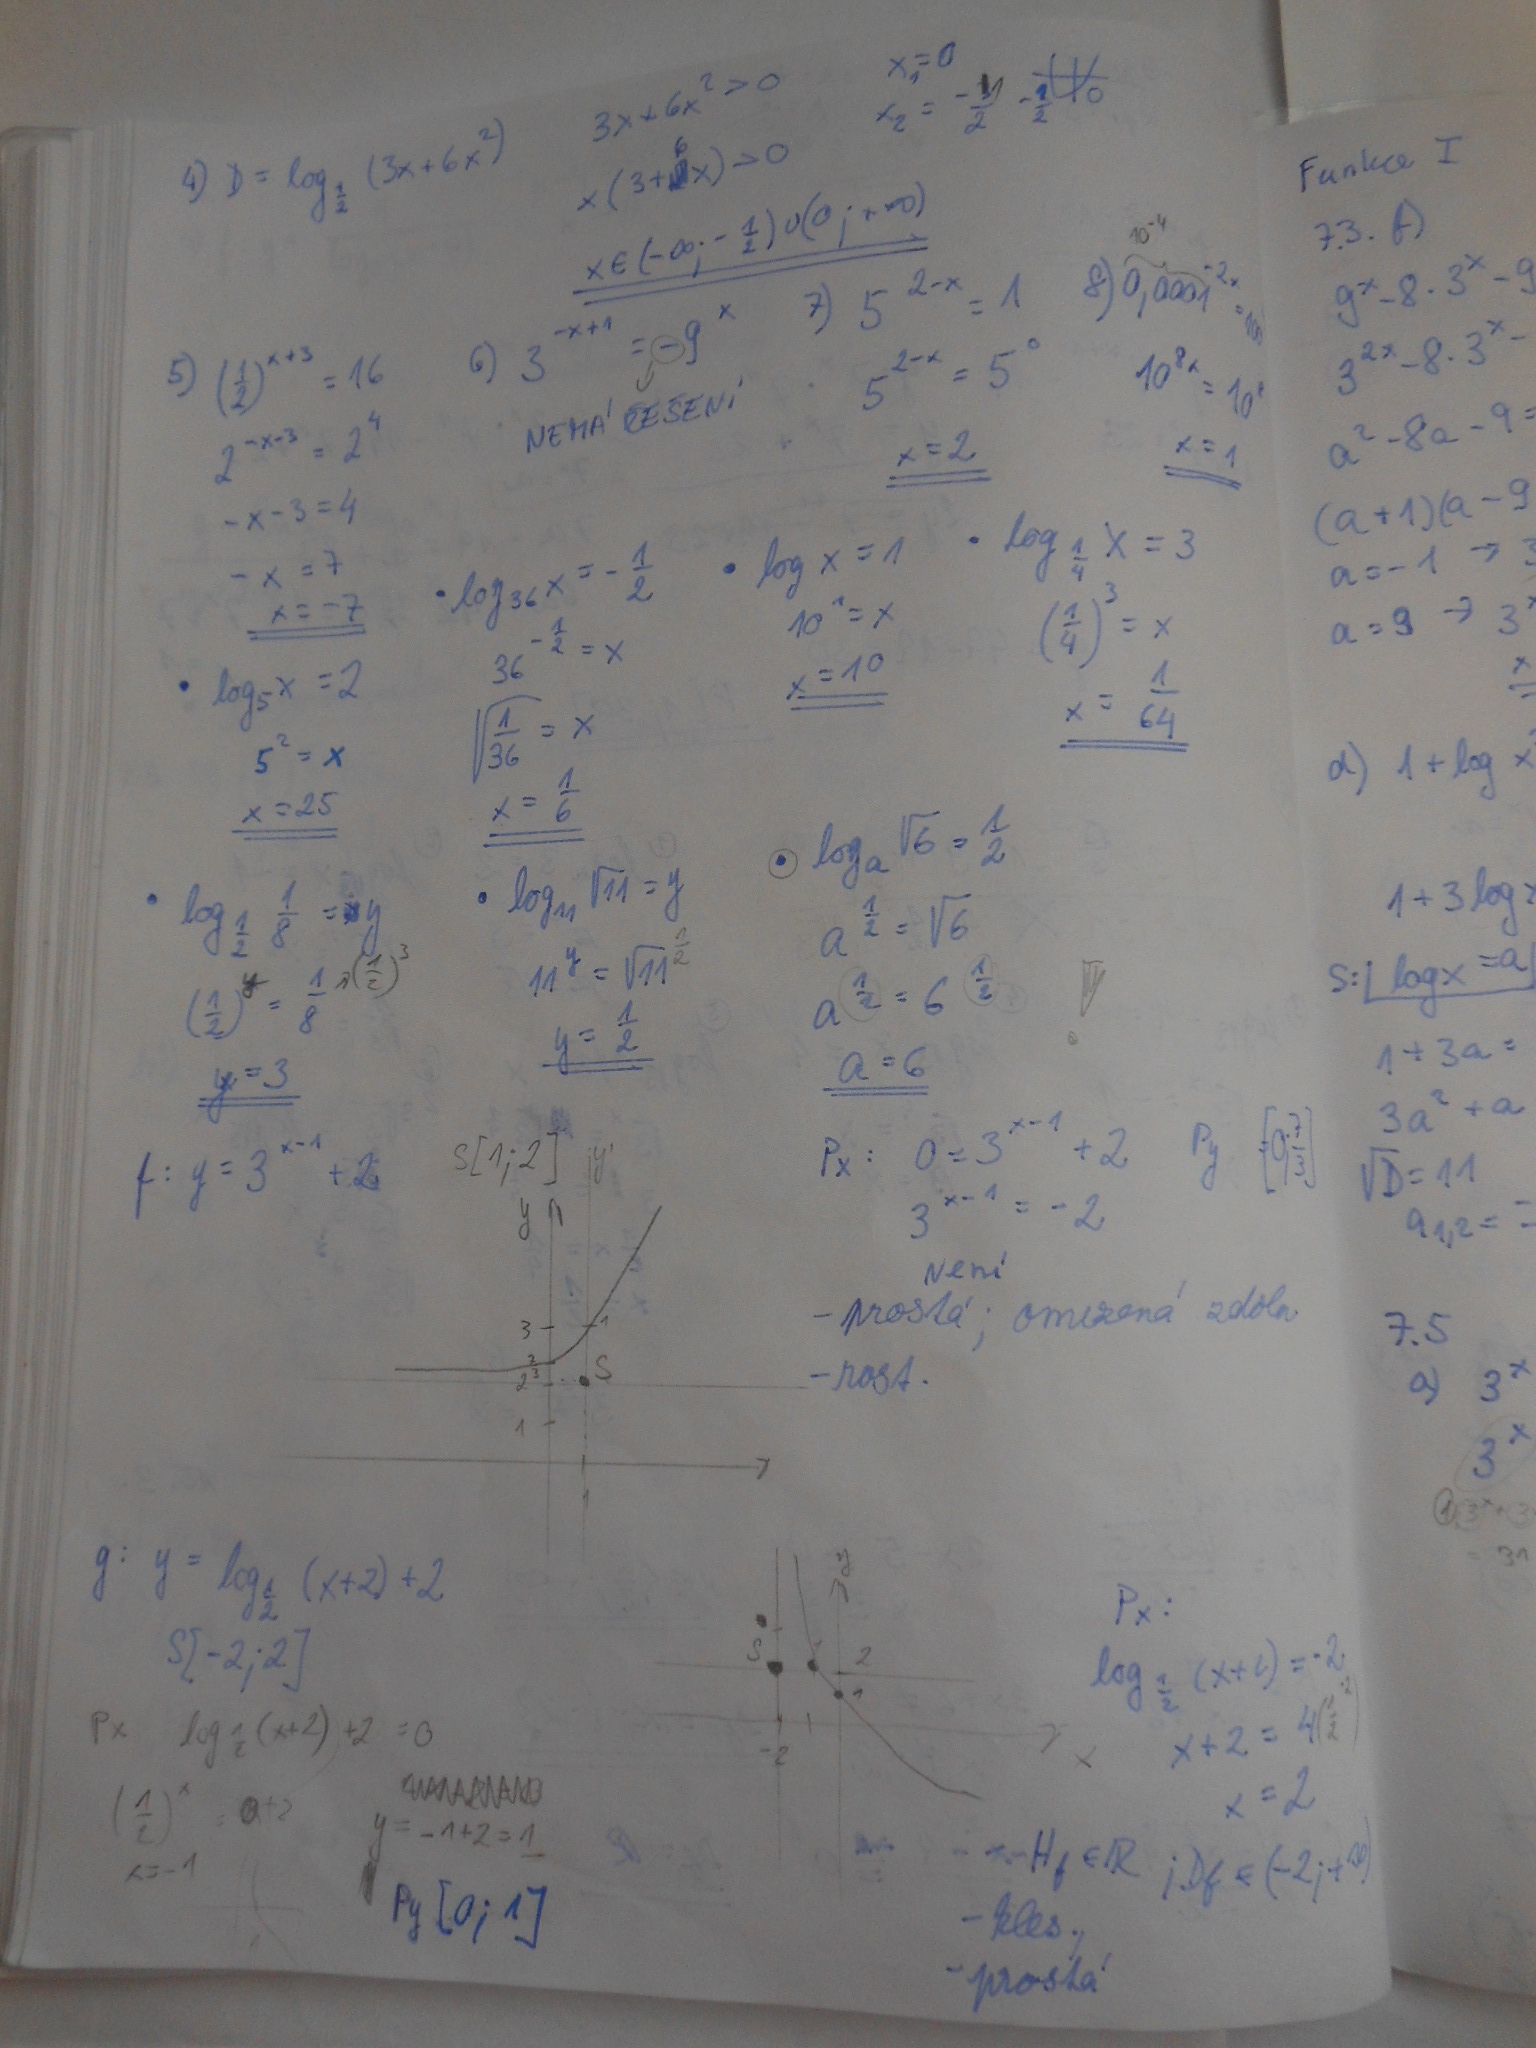 4) D = log_{1/2} (3x+6x²)
3x+6x² > 0
x(3+6x) > 0
x ∈ (-∞; -1/2) ∪ (0; +∞)
x₁ = 0
x₂ = -1/2
-1/2
0
5) (1/2)^{x+3} = 16
2^{-x-3} = 2⁴
-x-3 = 4
-x = 7
x = -7
6) 3^{-x+1} = -9^x
NEMÁ ŘEŠENÍ
7) 5^{2-x} = 1
5^{2-x} = 5⁰
x = 2
10^{-4}
8) 0,0001^{-2x}
10^{8x} = 10⁸
x = 1
• log₅x = 2
5² = x
x = 25
• log₃₆x = -1/2
36^{-1/2} = x
√(1/36) = x
x = 1/6
• log x = 1
10¹ = x
x = 10
• log_{1/4} x = 3
(1/4)³ = x
x = 1/64
• log_{1/2} 1/8 = y
(1/2)^y = 1/8 (1/2)³
y = 3
• log₁₁ √11 = y
11^y = √11 ^{1/2}
y = 1/2
• log_a √6 = 1/2
a^{1/2} = √6
a^{1/2} = 6^{1/2}
a = 6
!
f: y = 3^{x-1} + 2
S[1;2]
y'
y
3
2
1
1
S
1
Px: 0 = 3^{x-1} + 2
3^{x-1} = -2
Není
Py = [0; 7/3]
- prostá; omezená zdola
- rost.
g: y = log_{1/2} (x+2) + 2
S[-2;2]
Px log_{1/2} (x+2) + 2 = 0
(1/2)^x = 0+2
x = -1
y = -1+2 = 1
Py [0; 1]
y
S
2
1
-2
x
Px:
log_{1/2} (x+2) = -2
x+2 = 4
x = 2
H_f ∈ R ; D_f ∈ (-2; +∞)
- kles.,
- prostá
Funkce I
7.3. f)
9^x - 8·3^x - 9
3^{2x} - 8·3^x -
a² - 8a - 9 =
(a+1)(a-9
a = -1 → 3
a = 9 → 3^x
x
d) 1 + log x
1 + 3 log x
S: log x = a
1 + 3a =
3a² + a
√D = 11
a_{1,2} =
7.5
a) 3^x
3^x
= 31